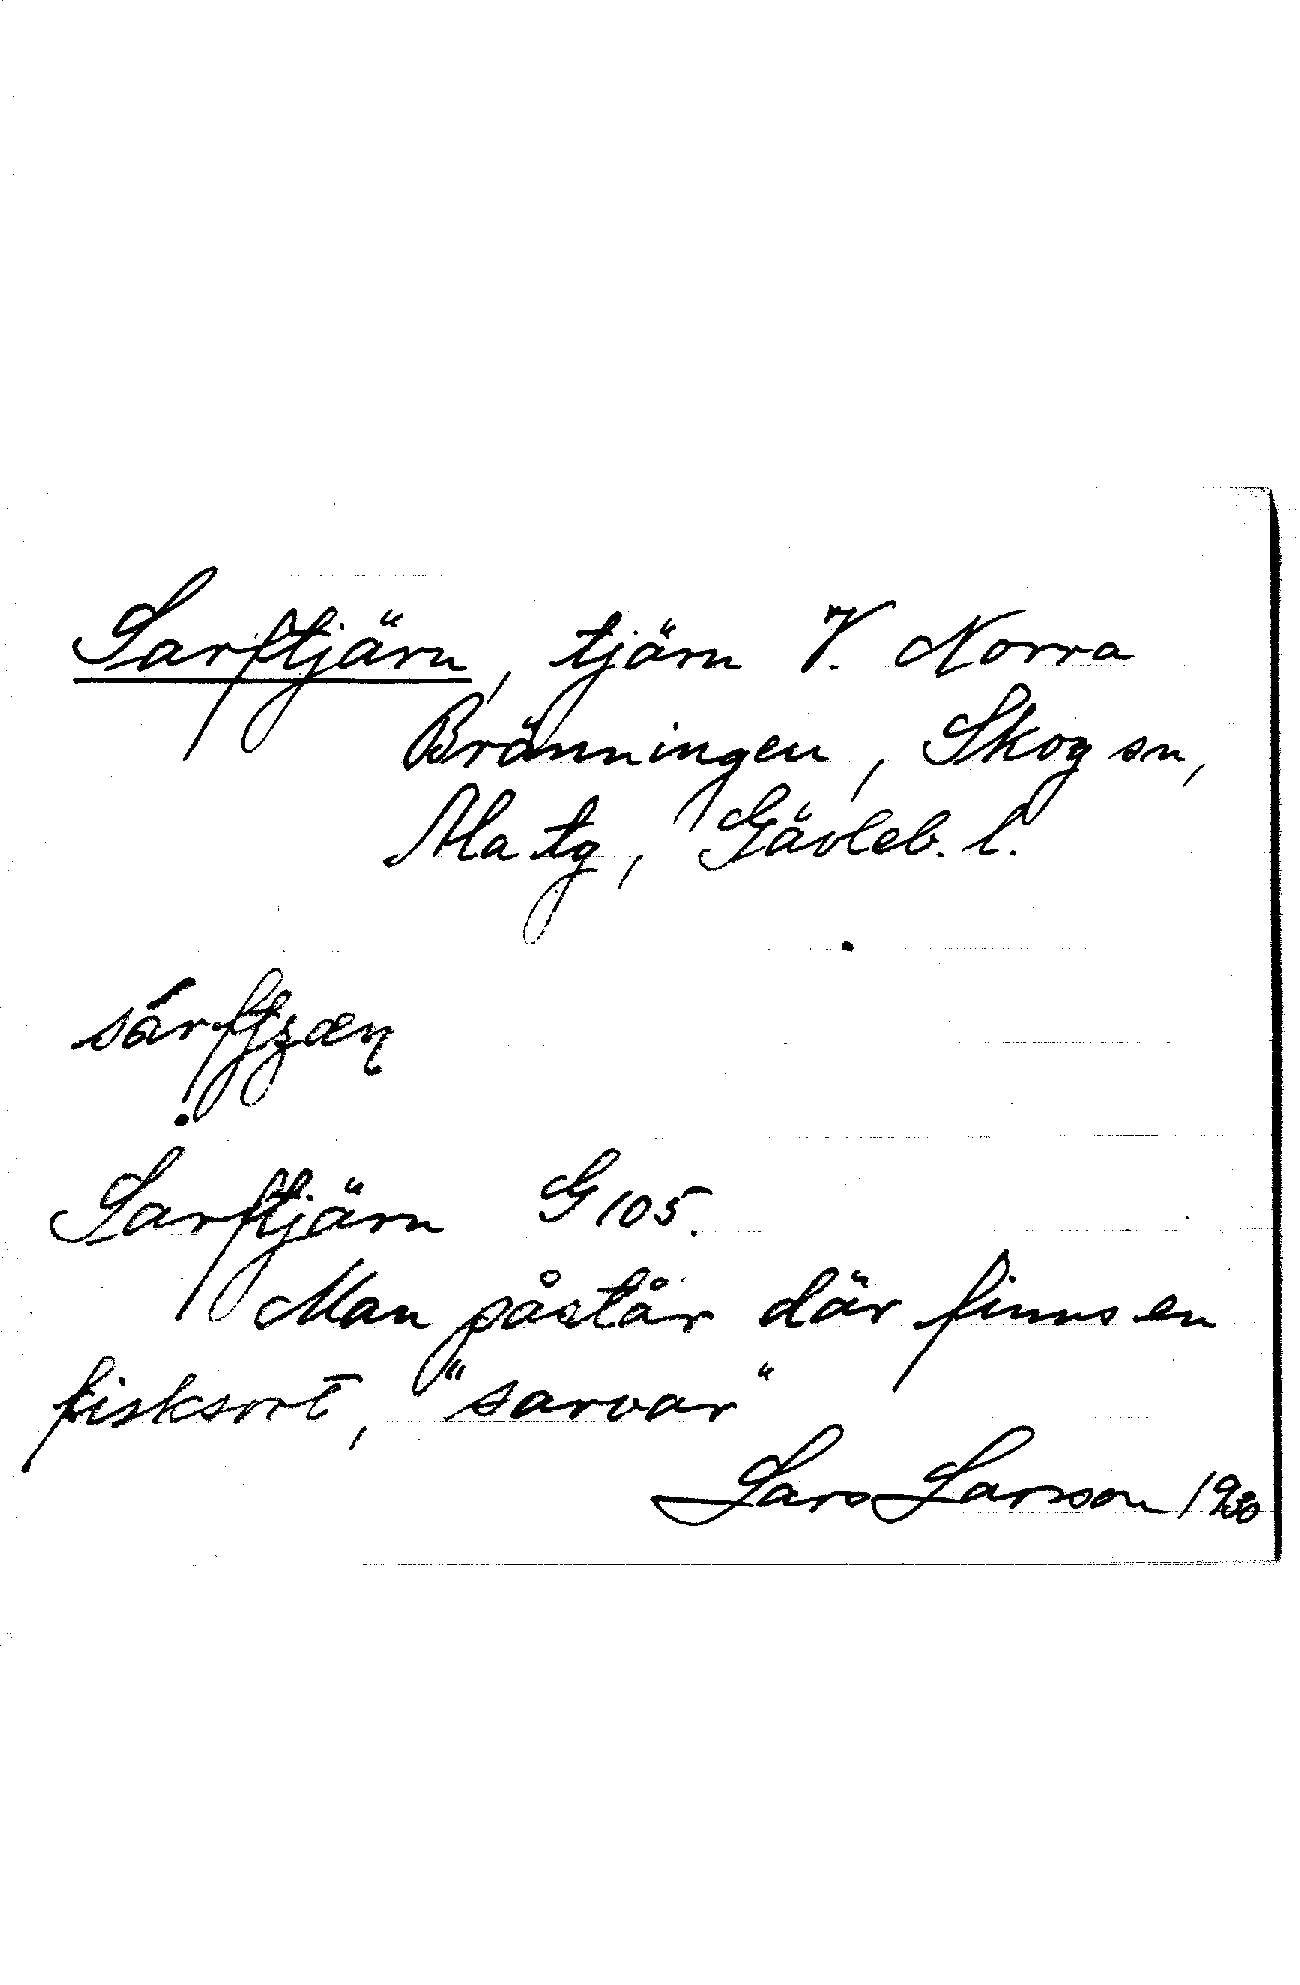 Sarftjärn, tjärn V. Norra
Bränningen, Skog sn,
Ala tg, Gävleb. l.
Sarftjärn G 105.
Man påstår där finns en
fisksort, "sarvar"
Lars Larsson 1930